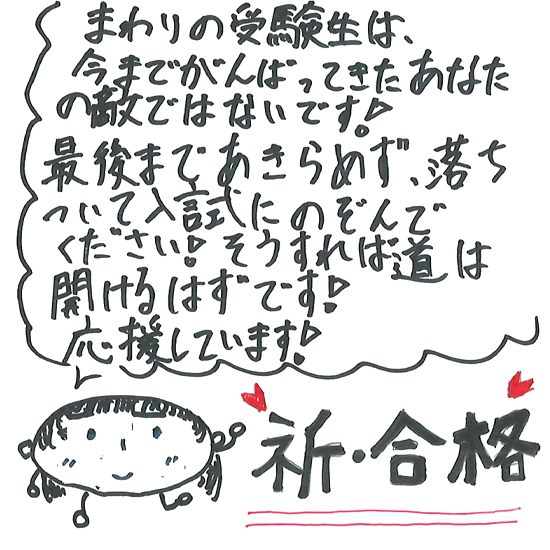 まわりの受験生は、
今までがんばってきたあなた
の敵ではないです!
最後まであきらめず、落ち
ついて入試にのぞんで
ください!そうすれば道は
開けるはずです!
応援しています!
祈・合格